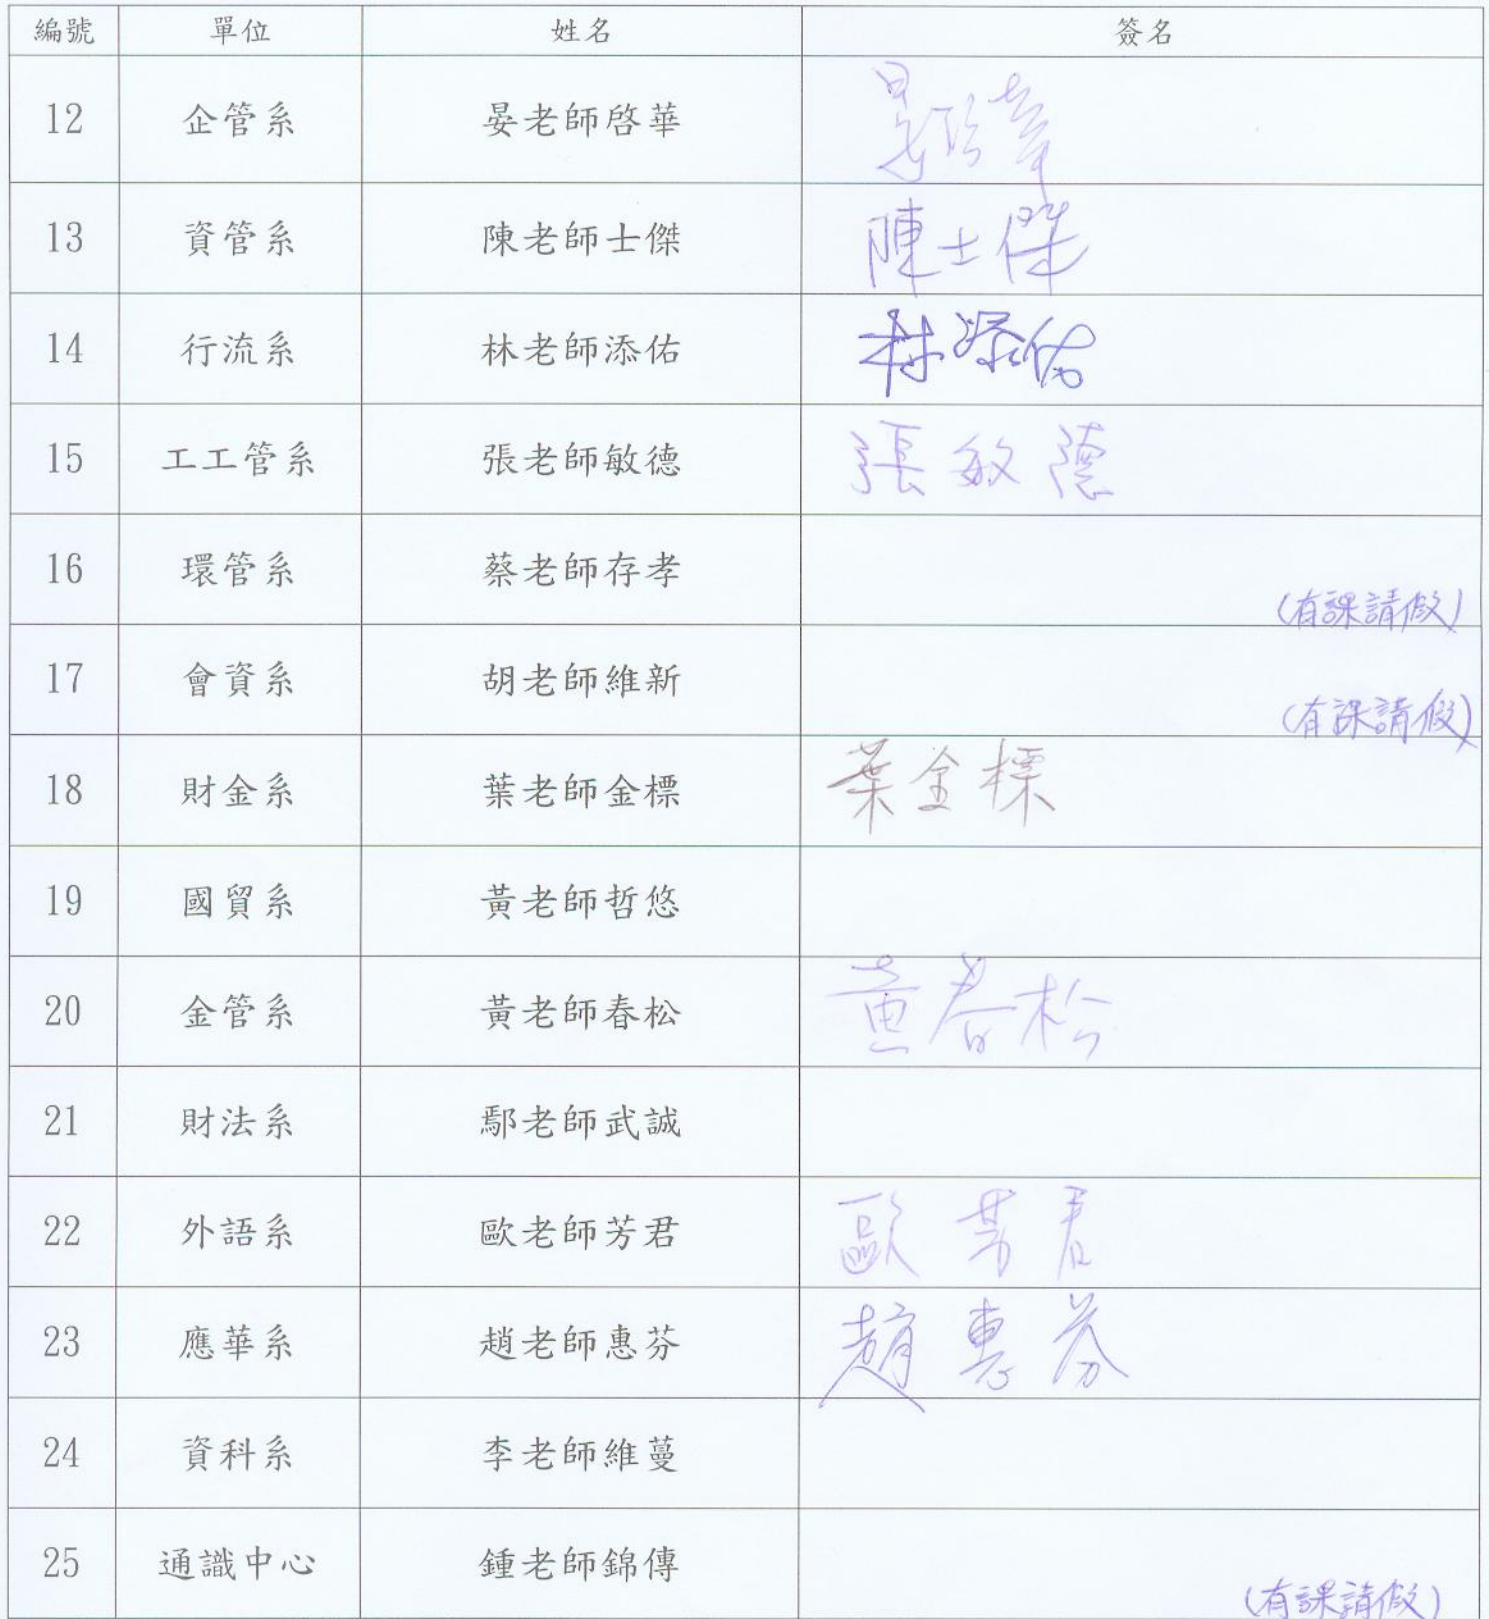 編號 單位 姓名 簽名
12 企管系 晏老師啓華 晏啓華
13 資管系 陳老師士傑 陳士傑
14 行流系 林老師添佑 林添佑
15 工工管系 張老師敏德 張敏德
16 環管系 蔡老師存孝 (有課請假)
17 會資系 胡老師維新 (有課請假)
18 財金系 葉老師金標 葉金標
19 國貿系 黃老師哲悠
20 金管系 黃老師春松 黃春松
21 財法系 鄢老師武誠
22 外語系 歐老師芳君 歐芳君
23 應華系 趙老師惠芬 趙惠芬
24 資科系 李老師維蔓
25 通識中心 鍾老師錦傳 (有課請假)